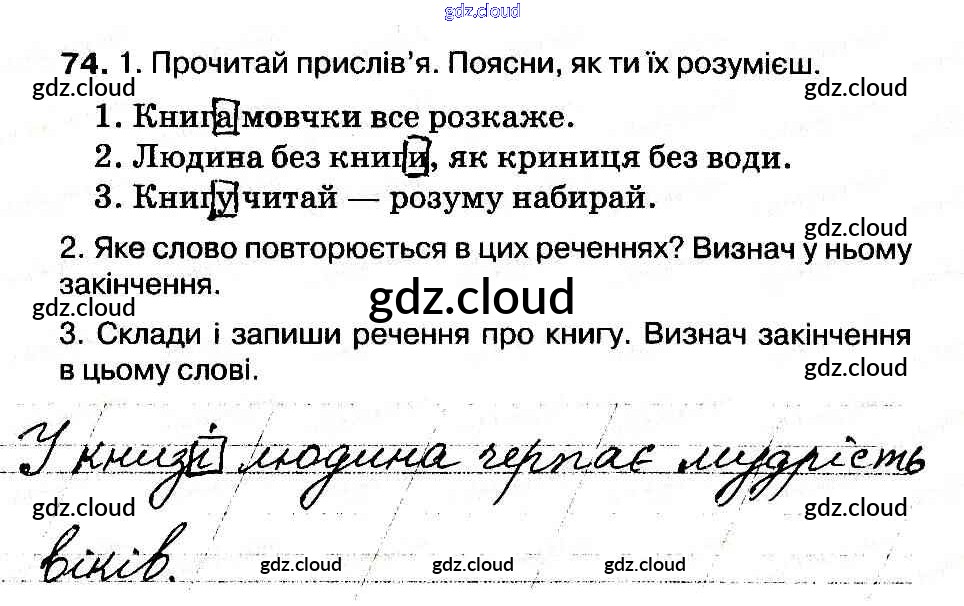 gdz.cloud
74. 1. Прочитай прислів’я. Поясни, як ти їх розумієш.
gdz.cloud gdz.cloud
1. Книга мовчки все розкаже.
2. Людина без книги, як криниця без води.
3. Книгу читай — розуму набирай.
gdz.cloud
2. Яке слово повторюється в цих реченнях? Визнач у ньому
закінчення.
gdz.cloud gdz.cloud
3. Склади і запиши речення про книгу. Визнач закінчення
в цьому слові.
gdz.cloud
У книзі людина черпає мудрість
gdz.cloud gdz.cloud
віків.
gdz.cloud gdz.cloud gdz.cloud